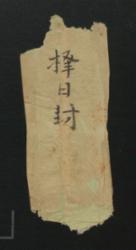 择日封